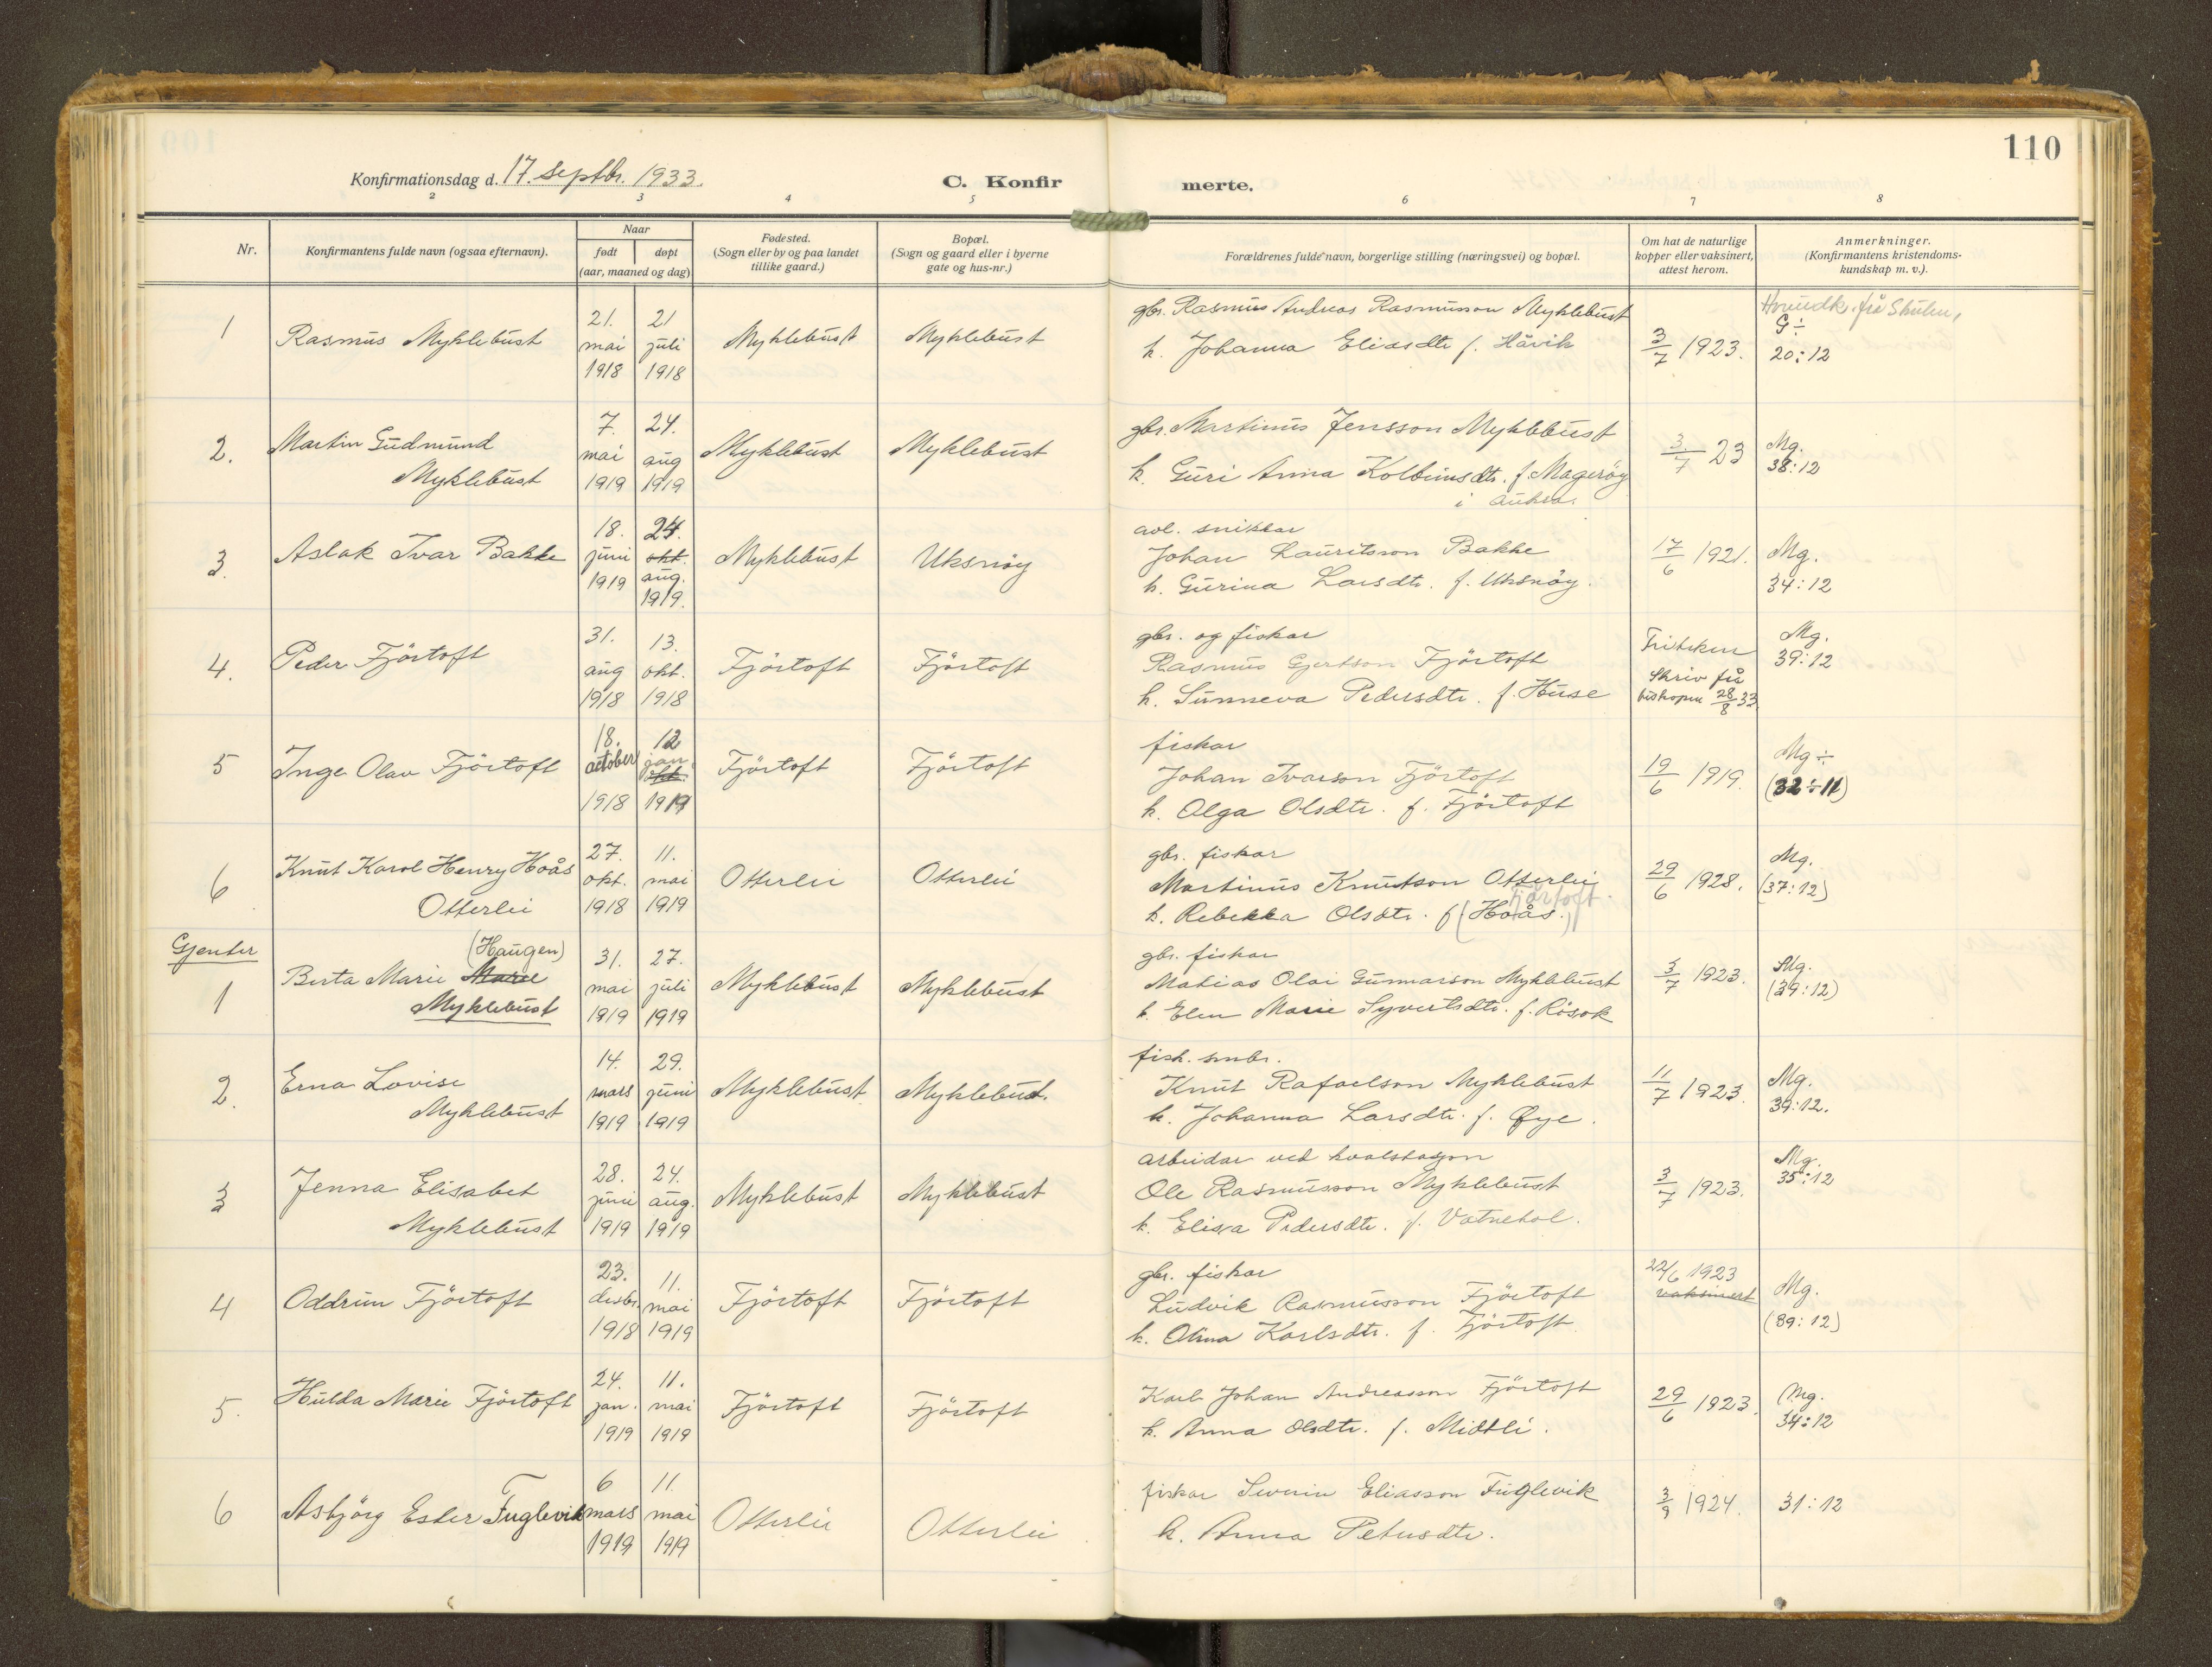 110
Konfirmationsdag d. 17. septbr. 1933.
C. Konfirmerte.
2 3 4 5 6 7 8
Nr.
Konfirmantens fulde navn (ogsaa efternavn).
Naar
født
døpt
(aar, maaned og dag)
Fødested.
(Sogn eller by og paa landet
tillike gaard.)
Bopæl.
(Sogn og gaard eller i byerne
gate og hus-nr.)
Forældrenes fulde navn, borgerlige stilling (næringsvei) og bopæl.
Om hat de naturlige
kopper eller vaksinert,
attest herom.
Anmerkninger.
(Konfirmantens kristendoms-
kundskap m. v.).
1 Rasmus Myklebust
21. mai 1918
21 juli 1918
Myklebust
Myklebust
gbr. Rasmus Andreas Rasmusson Myklebust
k. Johanna Eliasdtr f. Håvik
3/7 1923.
frå Skulen,
G÷
20:12
2. Martin Gudmund
Myklebust
7. mai 1919
24. aug 1919
Myklebust
Myklebust
gbr. Martinus Jensson Myklebust
k. Guri Anna Kolbeinsdtr. f. Magerøy
i Aukra.
3/7 23
Mg.
38:12
3. Aslak Ivar Bakke
18. juni 1919
24. okt. aug. 1919.
Myklebust
Uksnøy
avl. snikkar
Johan Lauritsson Bakke
k. Gurina Larsdtr. f. Uksnøy.
17/6 1921.
Mg.
34:12
4. Peder Fjörtoft
31. aug 1918
13. okt. 1918
Fjörtoft
Fjörtoft
gbr. og fiskar
Rasmus Gjertson Fjörtoft
k. Sunneva Pedersdtr. f. Huse
Skriv frå
biskopen 28/8 33
Mg.
39:12
5 Inge Olav Fjörtoft
18. october 1918
12 jan. okt. 1919
Fjörtoft
Fjörtoft
fiskar
Johan Ivarson Fjörtoft
k. Olga Olsdtr. f. Fjörtoft
19/6 1919.
Mg÷
(32÷11)
6 Knut Karol Henry Hoås
Otterlei
27. okt. 1918
11. mai 1919
Otterlei
Otterlei
gbr. fiskar
Martinus Knutson Otterlei
Fjørtoft.
k. Rebekka Olsdtr. f (Hoås.)
29/6 1928.
Mg.
(37:12)
Gjenter
(Haugen)
1 Berta Marie Marie
Myklebust
31. mai 1919
27. juli 1919
Myklebust
Myklebust
gbr. fiskar
Matias Olai Gunnarson Myklebust
k. Elen Marie Syvertsdtr. f. Rösok
3/7 1923.
Mg.
(39:12)
2. Erna Lovise
Myklebust
14. mars 1919
29. juni 1919
Myklebust
Myklebust.
fisk. smbr.
Knut Rafaelson Myklebust
k. Johanna Larsdtr. f. Øye.
11/7 1923.
Mg.
39:12.
3 Jenna Elisabet
Myklebust
28. juni 1919
24. aug. 1919
Myklebust
Myklebust
arbeidar ved kvalstasjon
Ole Rasmusson Myklebust
k. Elisa Pedersdtr. f. Vatnehol.
3/7 1923.
Mg.
35:12
4 Oddrun Fjörtoft
23. desbr. 1918
11. mai 1919
Fjörtoft
Fjörtoft
gbr. fiskar
Ludvik Rasmusson Fjörtoft
k. Olina Karlsdtr. f. Fjörtoft
22/6 1923
vaksinert
Mg.
(39:12)
5. Hulda Marie Fjörtoft
24. jan. 1919
11. mai 1919
Fjörtoft
Fjörtoft
Karl Johan Andreasson Fjörtoft
k. Anna Olsdtr. f. Midtli.
29/6 1923.
Mg.
34:12
6 Asbjörg Ester Fuglevik
6 mars 1919
11. mai 1919
Otterlei
Otterlei
fiskar Severin Eliasson Fuglevik
k. Anna Petersdtr.
3/9 1924.
31:12